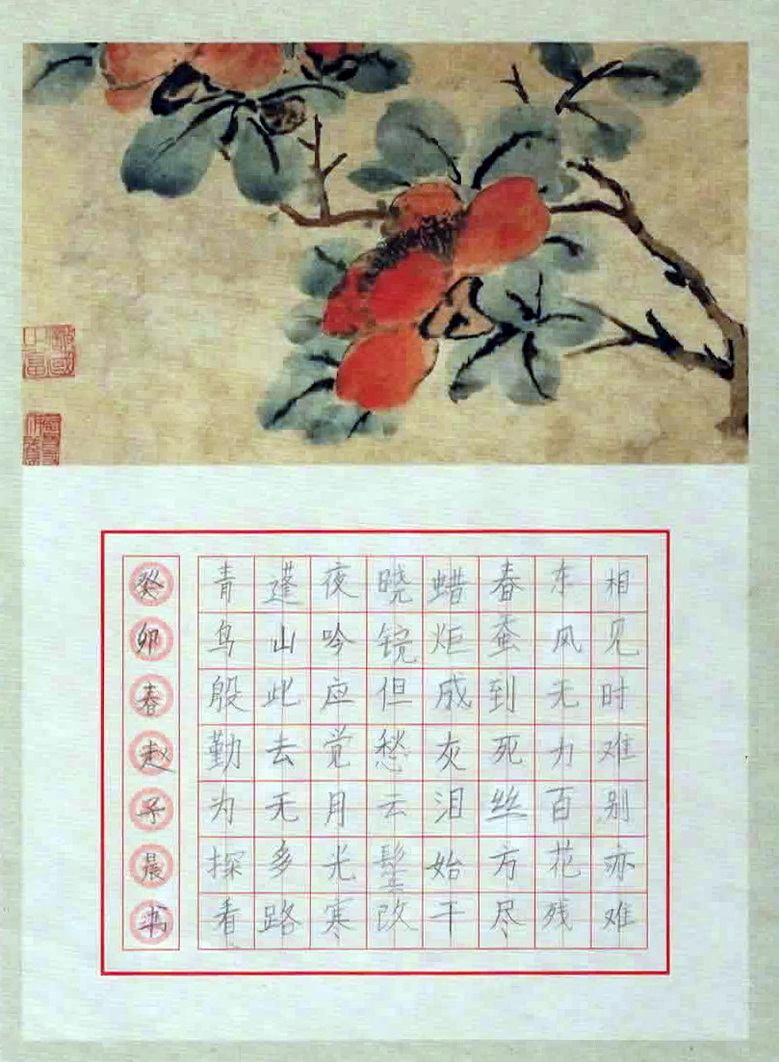 相见时难别亦难
东风无力百花残
春蚕到死丝方尽
蜡炬成灰泪始干
晓镜但愁云鬓改
夜吟应觉月光寒
蓬山此去无多路
青鸟殷勤为探看
癸卯春赵子晨